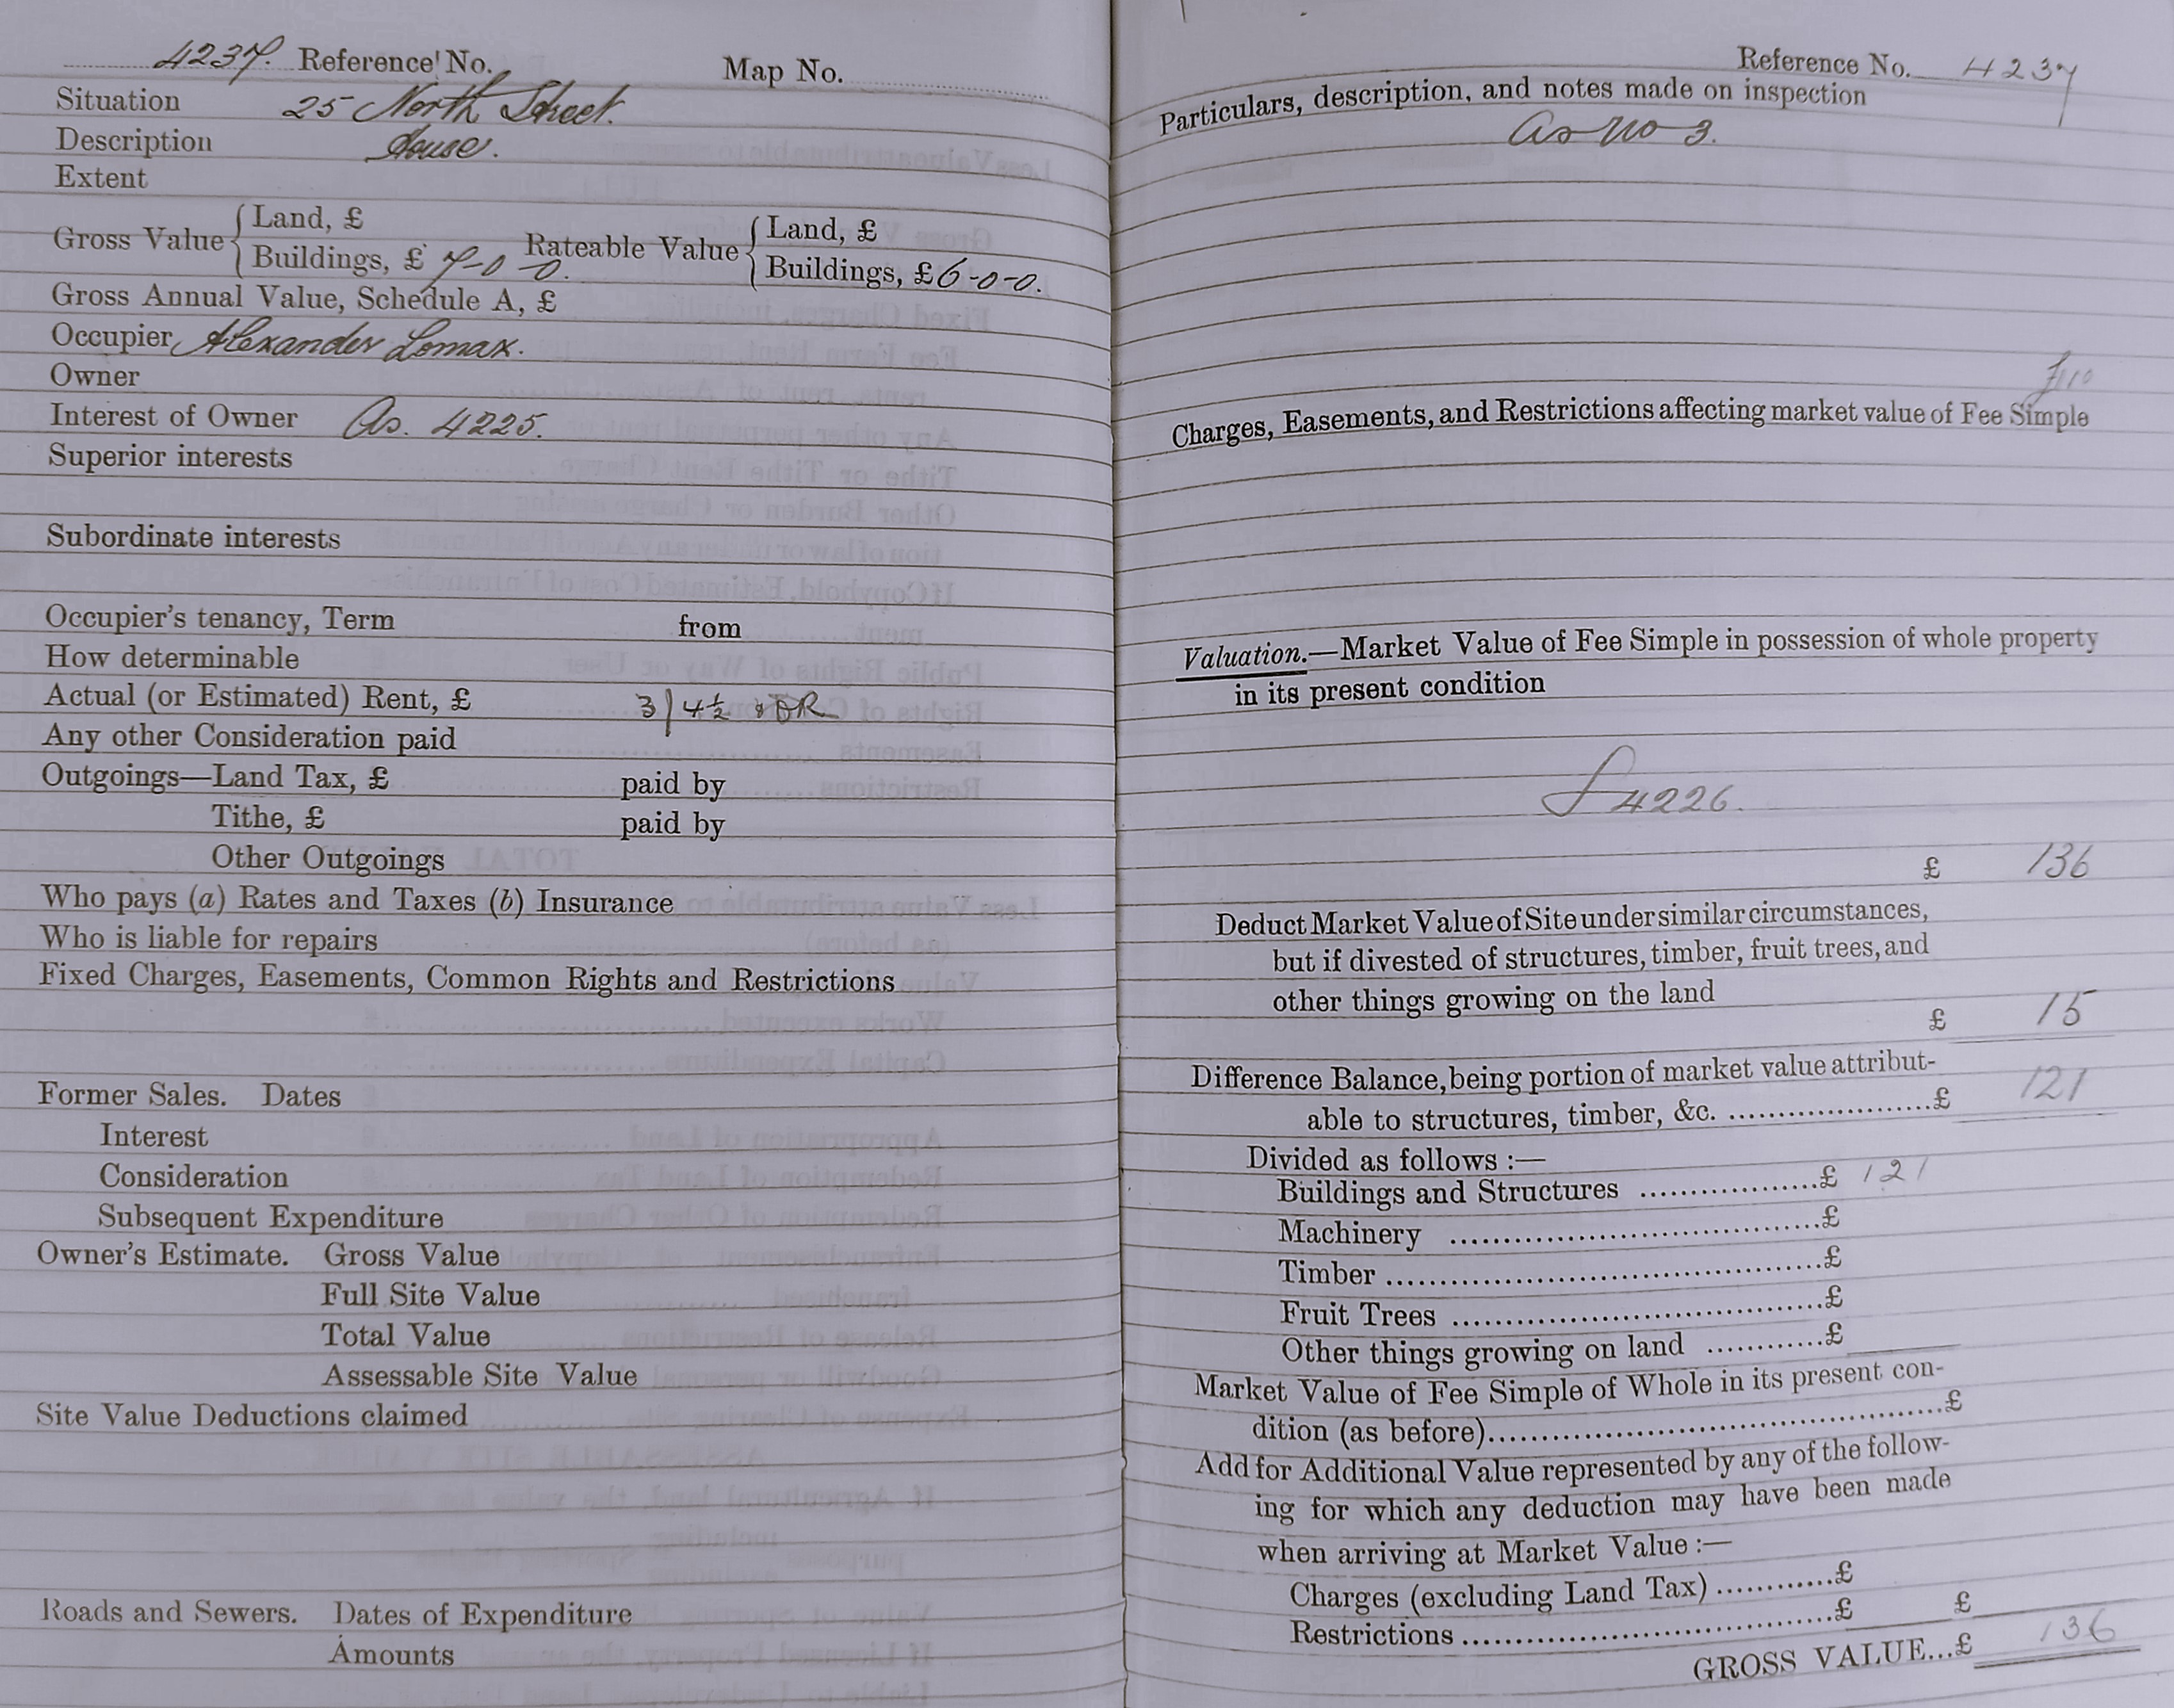 4237. Reference No.
Map No.
Situation 25 North Street.
Description House.
Extent
Gross Value { Land, £
Buildings, £ 7-0-0. Rateable Value { Land, £
Buildings, £ 6-0-0.
Gross Annual Value, Schedule A, £
Occupier Alexander Lomax.
Owner
Interest of Owner As. 4225.
Superior interests
Subordinate interests
Occupier's tenancy, Term from
How determinable
Actual (or Estimated) Rent, £ 3/4½ DR
Any other Consideration paid
Outgoings—Land Tax, £ paid by
Tithe, £ paid by
Other Outgoings
Who pays (a) Rates and Taxes (b) Insurance
Who is liable for repairs
Fixed Charges, Easements, Common Rights and Restrictions
Former Sales. Dates
Interest
Consideration
Subsequent Expenditure
Owner's Estimate. Gross Value
Full Site Value
Total Value
Assessable Site Value
Site Value Deductions claimed
Roads and Sewers. Dates of Expenditure
Amounts
Reference No. 4237
Particulars, description, and notes made on inspection
As No 3.
Charges, Easements, and Restrictions affecting market value of Fee Simple
Valuation.—Market Value of Fee Simple in possession of whole property
in its present condition
4226.
£ 136
Deduct Market Value of Site under similar circumstances,
but if divested of structures, timber, fruit trees, and
other things growing on the land
£ 15
Difference Balance, being portion of market value attribut-
able to structures, timber, &c. ....................£ 121
Divided as follows :—
Buildings and Structures ..................£ 121
Machinery ..................£
Timber ..................£
Fruit Trees ..................£
Other things growing on land ...........£
Market Value of Fee Simple of Whole in its present con-
dition (as before)..................£
Add for Additional Value represented by any of the follow-
ing for which any deduction may have been made
when arriving at Market Value :—
Charges (excluding Land Tax) ............£
Restrictions ..................£ £
GROSS VALUE...£ 136